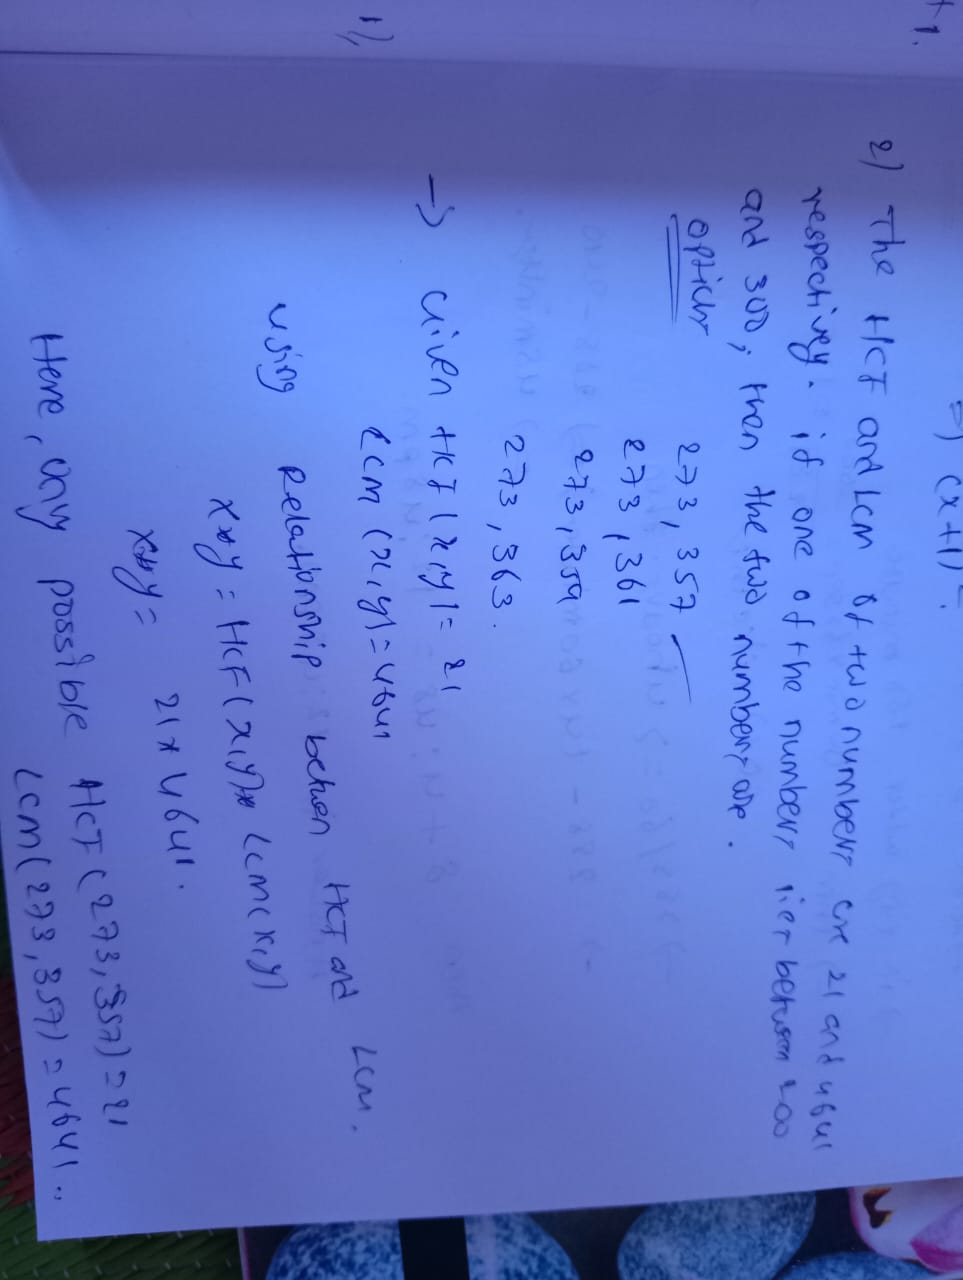 +1.
=) (x+1)².
2) The HCF and Lcm of two numbers are 21 and 4641
respectivey. if one of the numbers lies between 200
and 300, then the two numbers are.
option
273, 357
273, 361
273, 359
273, 363.
1),
→ Given HCF (x,y) = 21
Lcm (x,y) = 4641
using Relationship between HCF and Lcm.
x*y = HCF(x,y)* Lcm(x,y)
x*y = 21 x 4641.
Here, only possible HCF (273, 357) = 21
Lcm(273, 357) = 4641 ..